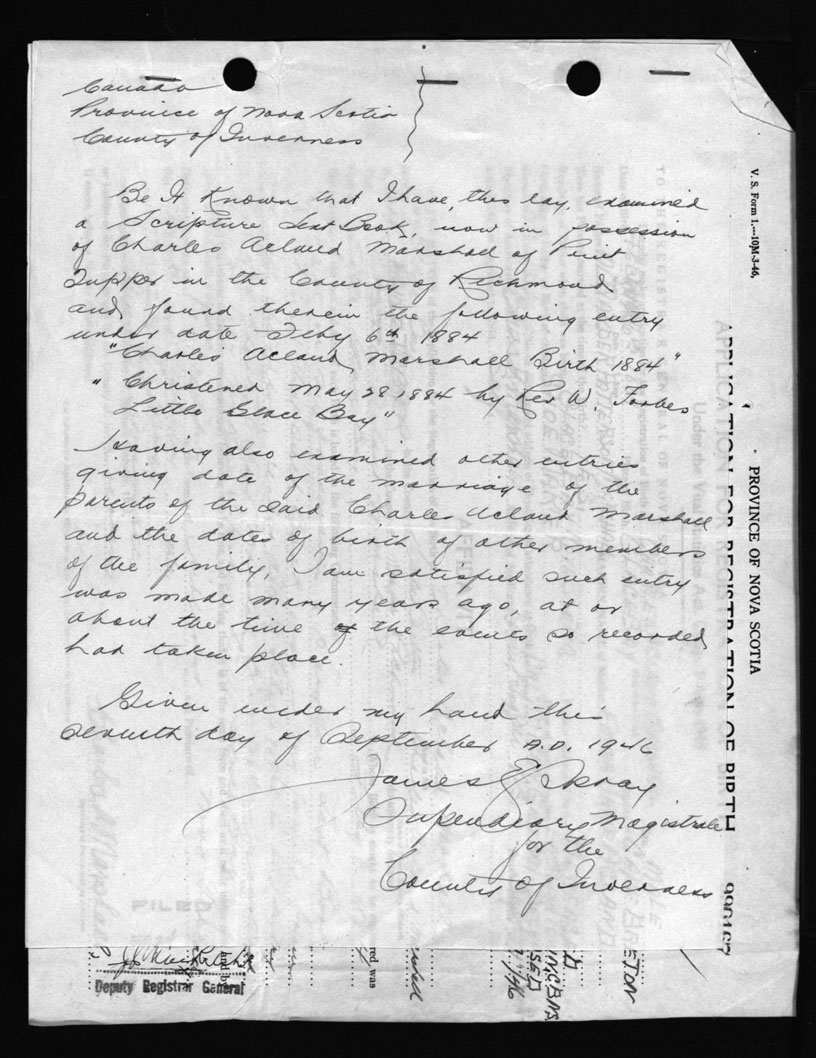 Canada
Province of Nova Scotia
County of Inverness
Be It Known that I have, this day, examined
a Scripture Text Book, now in possession
of Charles Acland Marshall of Point
Tupper in the County of Richmond
and found therein the following entry
under date Feby 6th 1884
"Charles Acland Marshall Birth 1884"
"Christened May 28 1884 by Rev W. Forbes
Little Glace Bay"
Having also examined other entries
giving date of the marriage of the
parents of the said Charles Acland Marshall
and the dates of birth of other members
of the family, I am satisfied such entry
was made many years ago, at or
about the time of the events so recorded
had taken place.
Given under my hand this
seventh day of September A.D. 1946
James
Stipendiary Magistrate
for the
County of Inverness
V. S. Form 1.—10M-3-46,
PROVINCE OF NOVA SCOTIA
APPLICATION FOR REGISTRATION OF BIRTH
Deputy Registrar General
red was